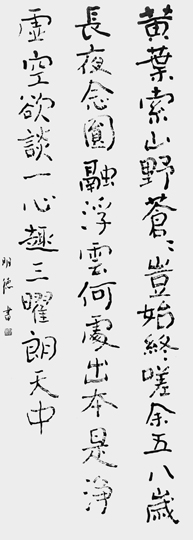 黄葉索山野蒼々豈始終嗟余五八歳
長夜念圓融浮雲何處出本是浄
虚空欲談一心趣三曜朗天中
明徳書